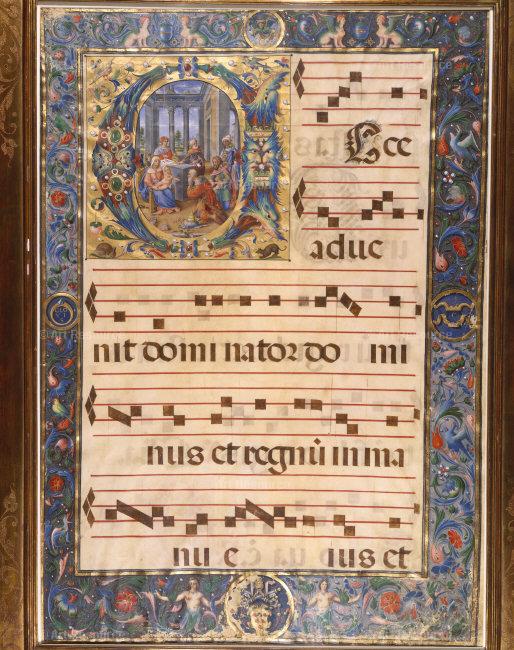 Ecce
adue
nit domi nator do mi
nus et regnũ in ma
nu e ius et